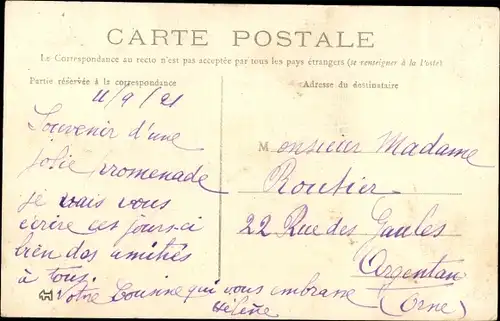 CARTE POSTALE
Le Correspondance au recto n'est pas acceptée par tous les pays étrangers (se renseigner à la Poste)
Partie réservée à la correspondance
Adresse du destinataire
11/9/21
Souvenir d'une
jolie promenade
je vais vous
écrire ces jours-ci
bien des amitiés
à tous.
Votre Cousine qui vous embrasse
Hélène
Monsieur Madame
Routier
22 Rue des Gaules
Argentan
(Orne)